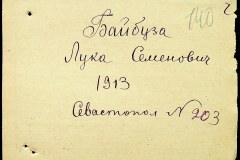 140
Байбуза
Лука Семенович
1913
Севастопол № 203